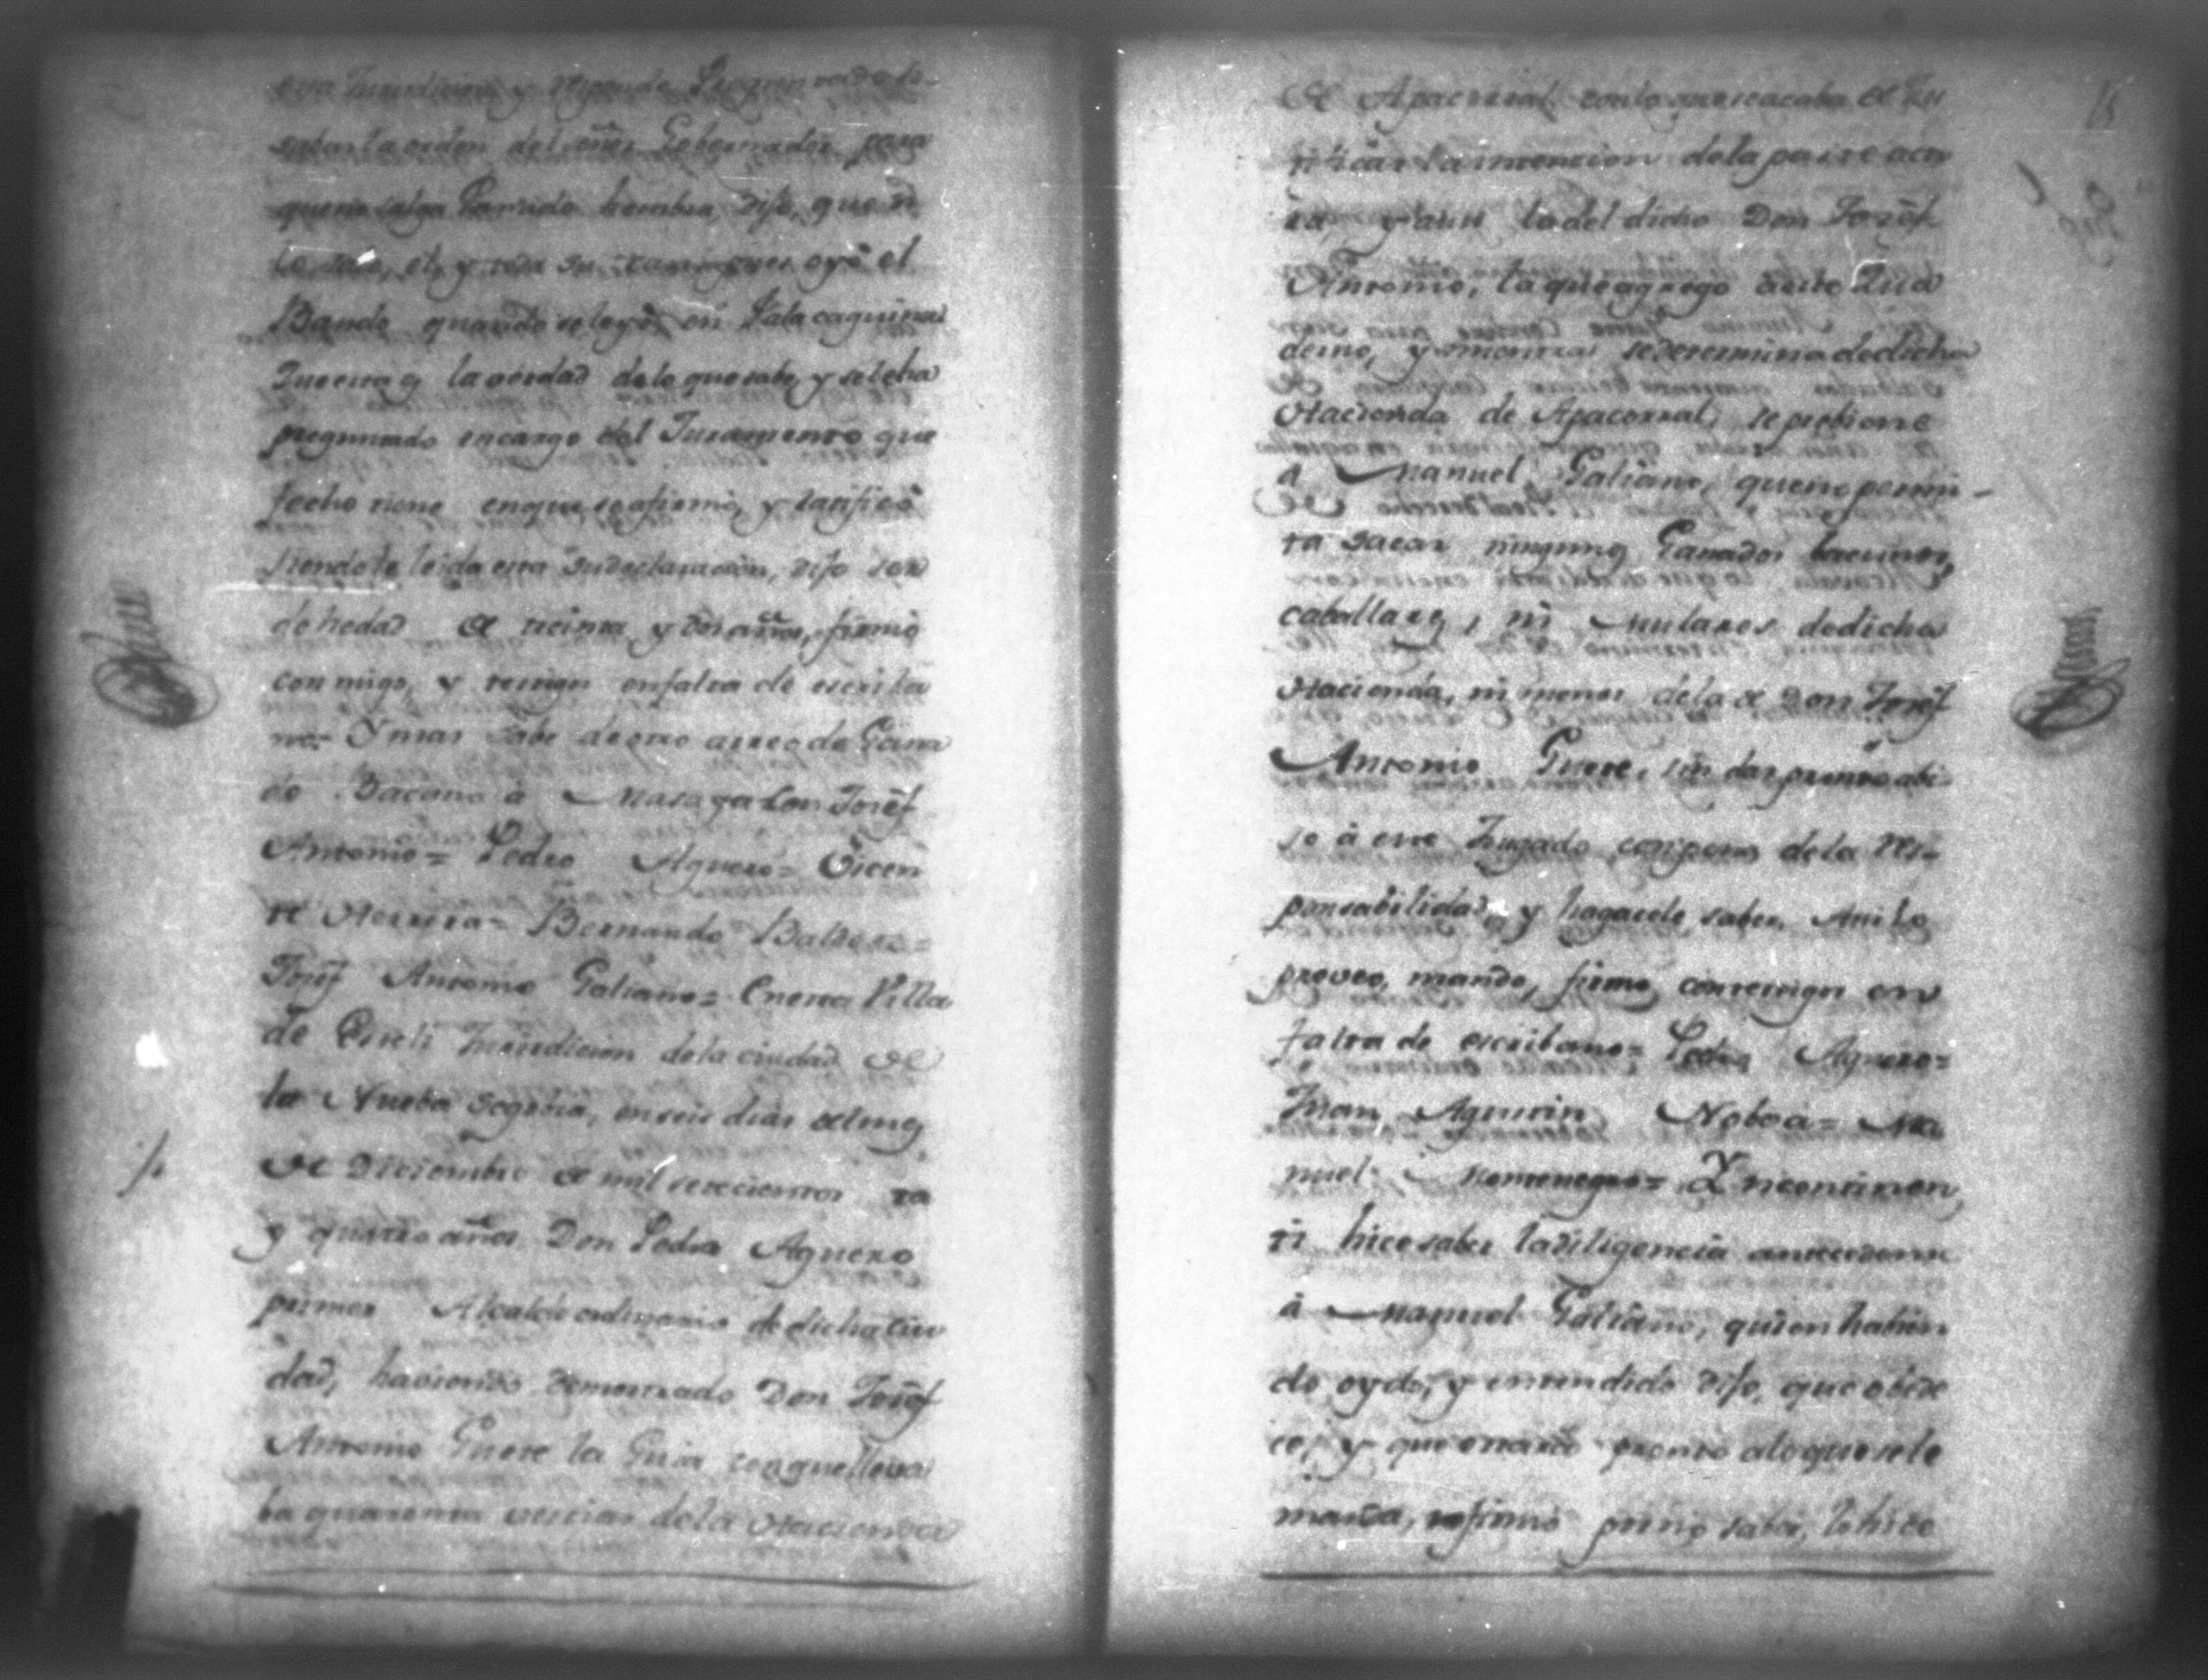 esta Jurisdicion, y responde Preguntado si
sabia la orden del señor Gobernador para
que no salga Ganado hembra, dijo, que si
lo sabe, el, y toda su oyó el
Bando quando se leyó en Palacaguina
Que esta es la verdad de lo que sabe, y se le ha
preguntado encargo del Juramento que
fecho tiene en que se afirmó, y ratificó
siendole leida esta su declaracion, dijo ser
de hedad de treinta y tres años, firmó
conmigo, y testigos en falta de escriba
no= Y mas sabe de otro arreo de Gana
do Bacano à Masaya Don Josef
Antonio= Pedro Aguero= Vicen
te Herrera= Bernardo Baldere=
Josef Antonio Galiano= En esta Villa
de Esteli Jurisdicion de la ciudad de
la Nueba Segobia, en seis dias del mes
de Diciembre de mil setecientos
y quatro años Don Pedro Aguero
primer Alcalde ordinario de dicha ciu
dad, haviendo demostrado Don Josef
Antonio Guere la Guia con que lleva
ba quarenta vestias de la Hacienda
de Apacorral con lo que se acaba de Ju
stificar la intencion de la parte acto
ra, y aun la del dicho Don Josef
Antonio, la que agrego à este Qua
derno, y mientras se determina de dicha
Hacienda de Apacorral, se prebiene
à Manuel Galiano, que no permi-
ta sacar ningunos Ganados bacunos,
caballares, ni Mulares de dicha
Hacienda, ni menos de la de Don Josef
Antonio Guere, sin dar pronto abi-
so à este Juzgado con pena de la res-
ponsabilidad, y hagasele saber. Asi lo
proveo, mando, firmo, con testigos en
falta de escribano= Pedro Aguero=
Juan Agustin Noboa= Ma
nuel Montenegro= Yncontinen
ti hice saber la diligencia antecedente
à Manuel Galiano, quien habien
do oydo, y entendido dijo, que obede
ce, y que estará pronto a lo que se le
manda, no firmó por no saber, lo hice